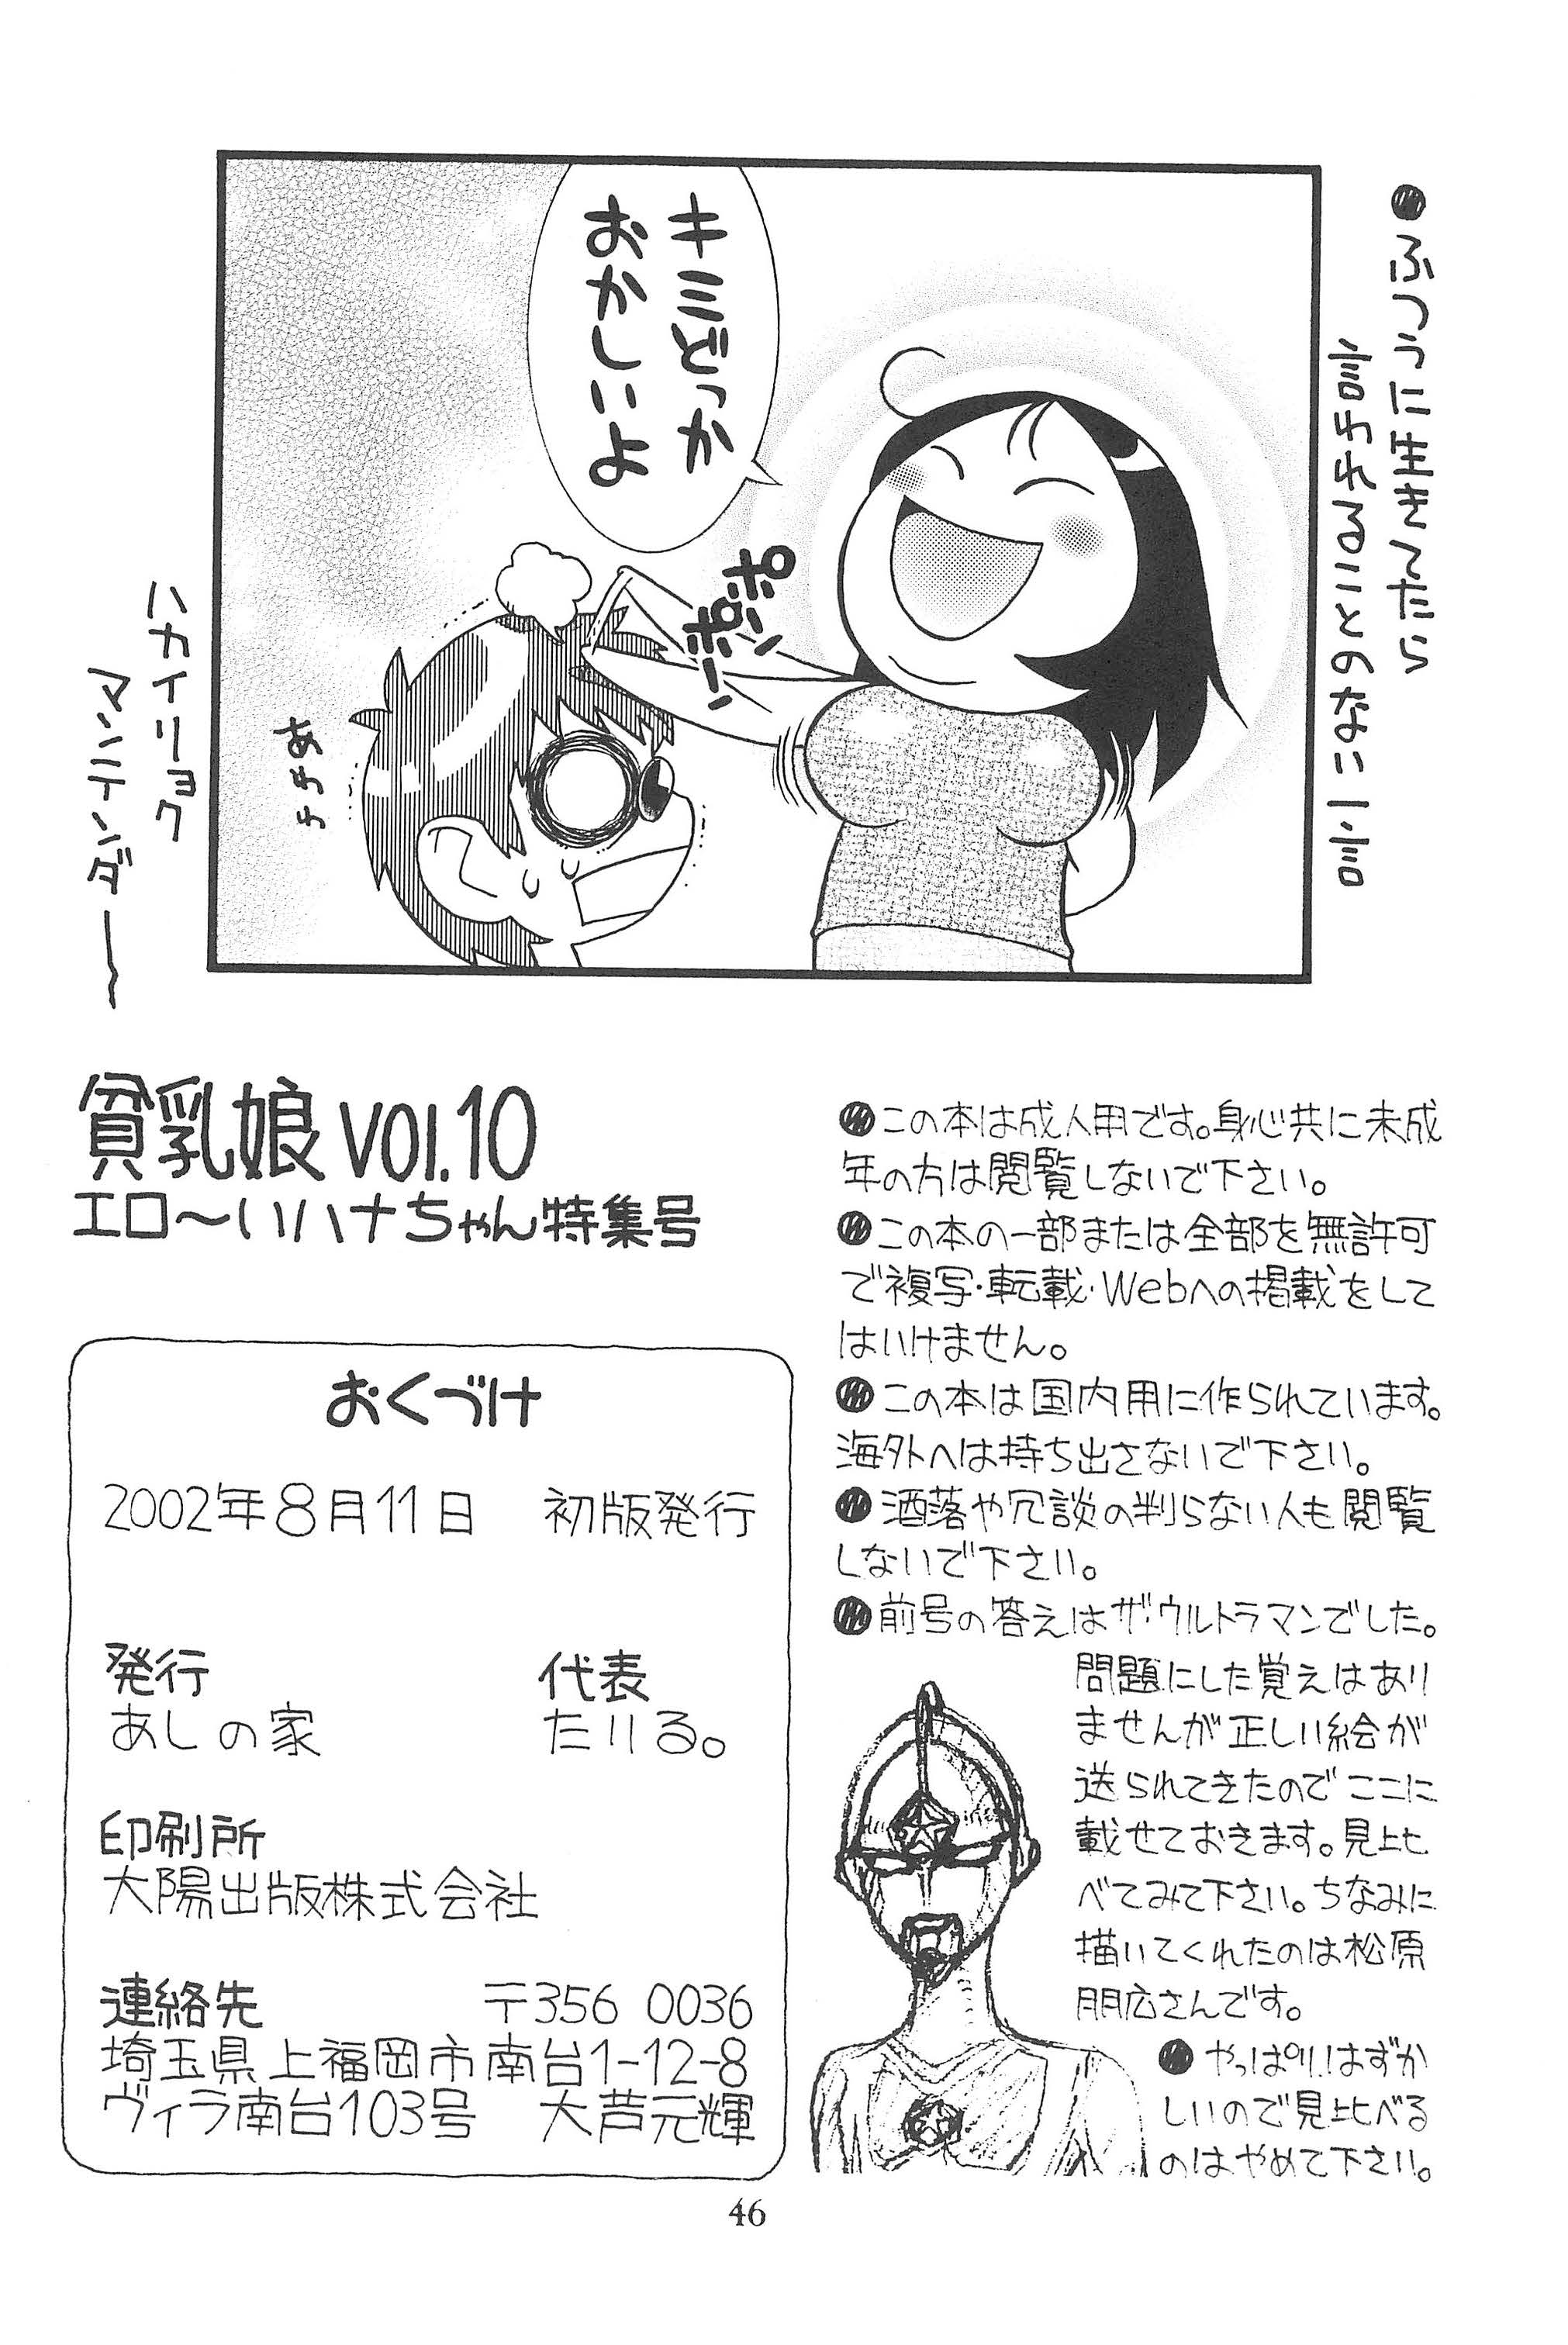 ●ふつうに生きてたら
言われることのない一言
キミどっか
おかしいよ
あわわ
ハカイリョク
マンテンダー〜
貧乳娘 VOl.10
エロ〜いハナちゃん特集号
おくづけ
2002年8月11日 初版発行
発行 代表
あしの家 たりる。
印刷所
大陽出版株式会社
連絡先 〒356 0036
埼玉県上福岡市南台1-12-8
ヴィラ南台103号 大芦元輝
●この本は成人用です。身心共に未成
年の方は閲覧しないで下さい。
●この本の一部または全部を無許可
で複写・転載・Webへの掲載をして
はいけません。
●この本は国内用に作られています。
海外へは持ち出さないで下さい。
●洒落や冗談の判らない人も閲覧
しないで下さい。
●前号の答えはザ・ウルトラマンでした。
問題にした覚えはあり
ませんが正しい絵が
送られてきたのでここに
載せておきます。見比
べてみて下さい。ちなみに
描いてくれたのは松原
朋広さんです。
●やっぱり！はずか
しいので見比べる
のはやめて下さい。
46